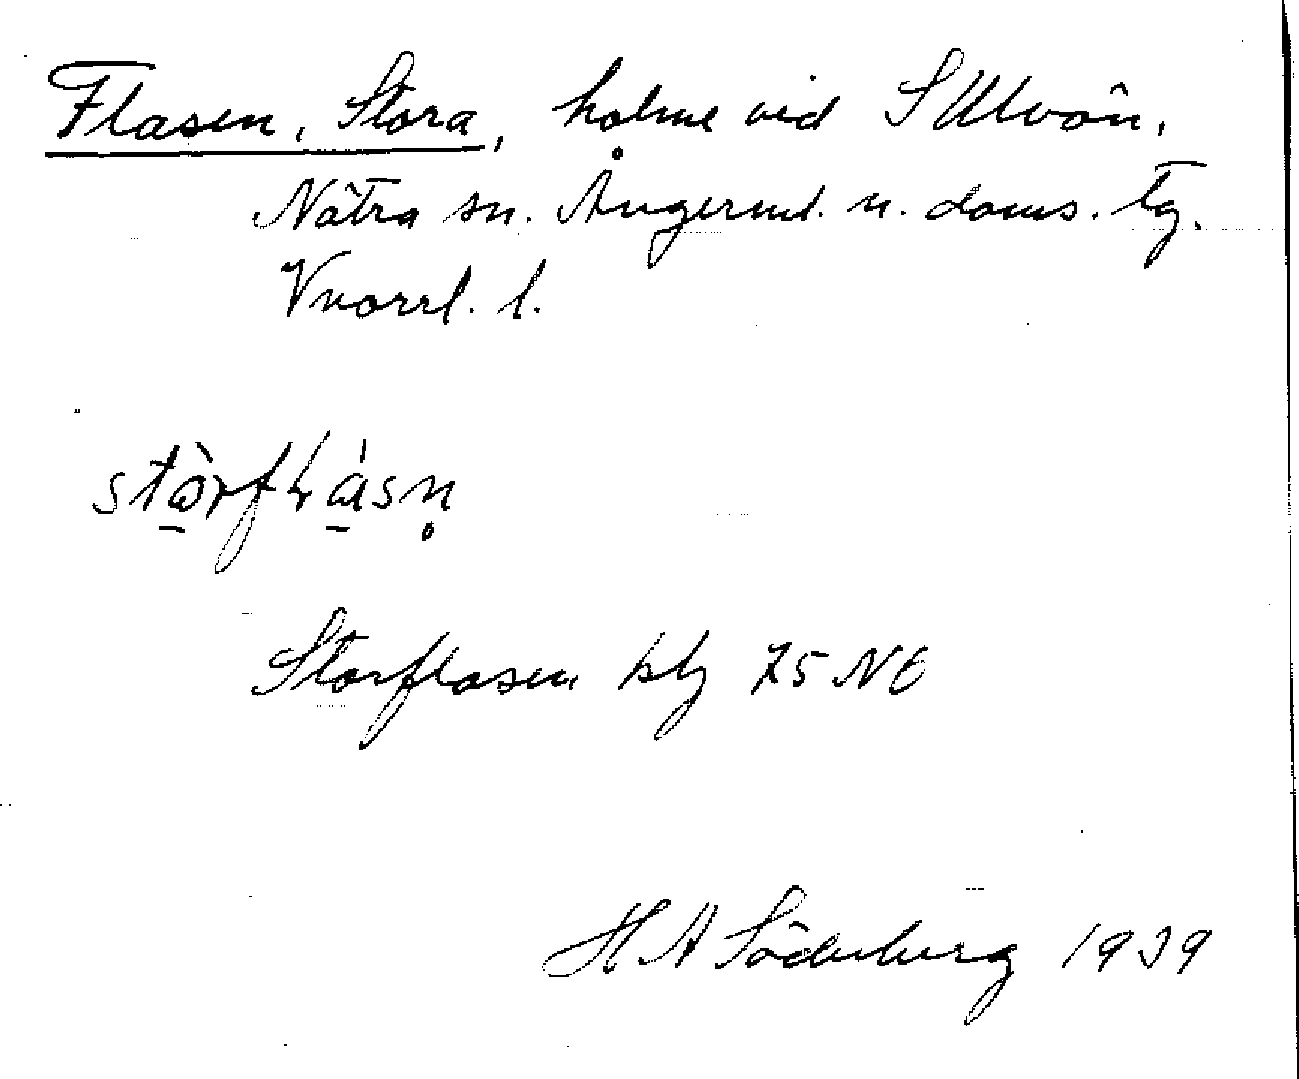 Flasen, Stora, holme vid S Ulvön,
Nätra sn. Ångerml. n. doms. tg.
Vnorrl. l.
stòrfLásn̥
Storflasen kbl 75 NE
H A Söderberg 1939